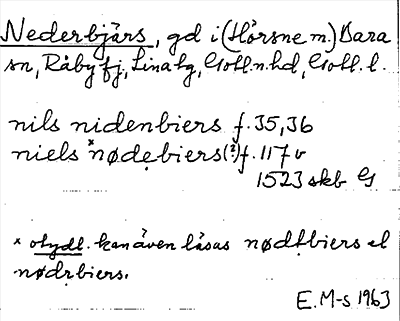 Nederbjärs, gd i (Hörsne m.) Bara
sn, Råby fj, Lina tg, Gotl. n. hd, Gotl. l.
nils nidenbiers f. 35, 36
niels ˣnødebiers (?) f. 117 v
1523 skb G
ˣ otydl. kan även läsas nødtbiers el
nødrbiers.
E. M-s 1963